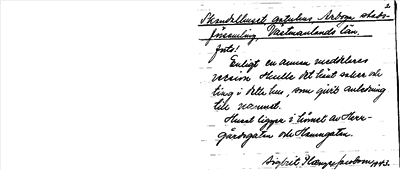 2
Skandalhuset, Arboga stads-
församling, Västmanlands län.
forts!
Enligt en annan meddelares
version skulle det hänt saker och
ting i detta hus, som givit anledning
till namnet.
Huset ligger i hörnet av Herr-
gårdsgatan och Hamngatan.
1943.